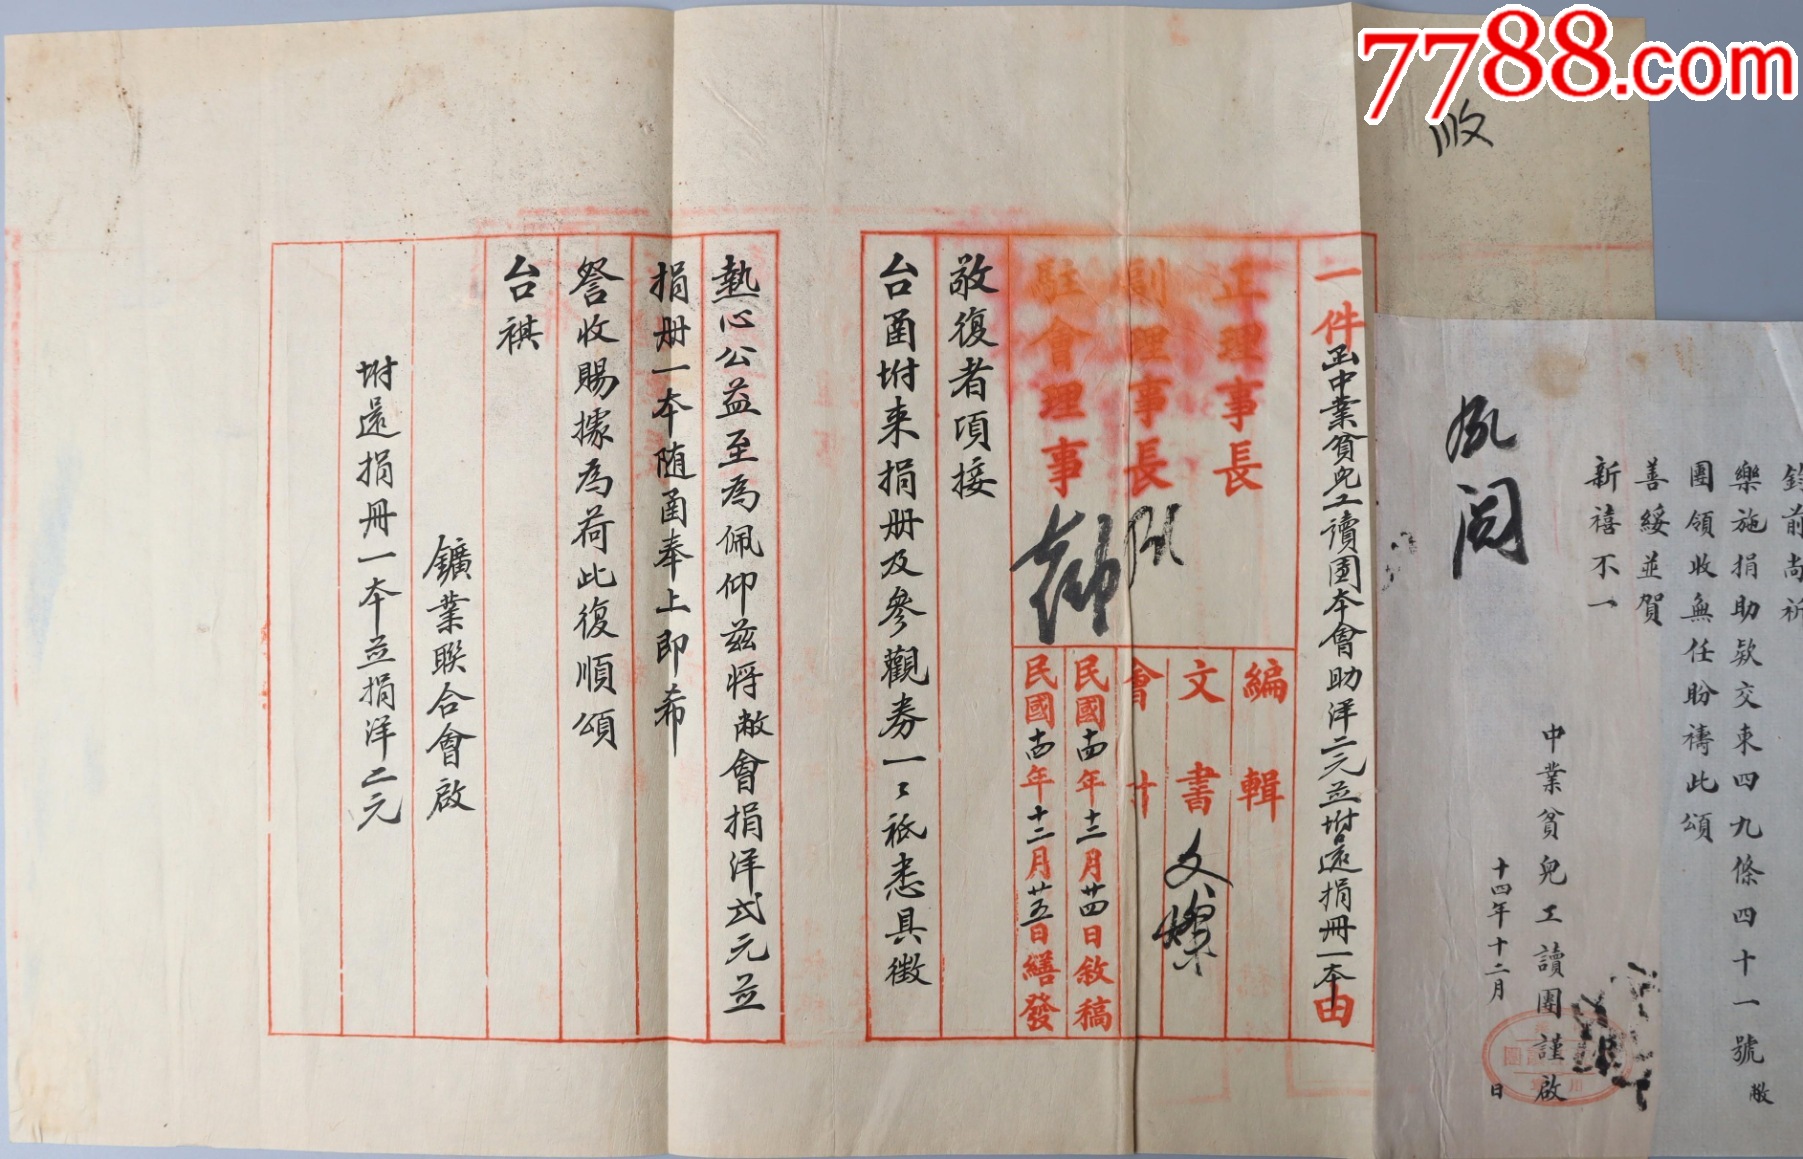 7788.com
收
一件函中業貧兒工讀團本會助洋二元並坿還捐冊一本由
正理事長
副理事長
駐會理事
編輯
文書
會計
民國十四年十二月廿四日敘稿
民國十四年十二月廿五日繕發
敬復者項接
台函坿来捐册及參觀券一〻祇悉具徵
熱心公益至為佩仰兹將敝會捐洋弍元並
捐册一本随函奉上即希
詧收賜據為荷此復順頌
台祺
鑛業聯合會啟
坿還捐冊一本並捐洋二元
前尚祈
樂施捐助欵交東四九條四十一號敝
團領收無任盼禱此頌
善綏並賀
新禧不一
中業貧兒工讀團謹啟
十四年十二月 日
閱